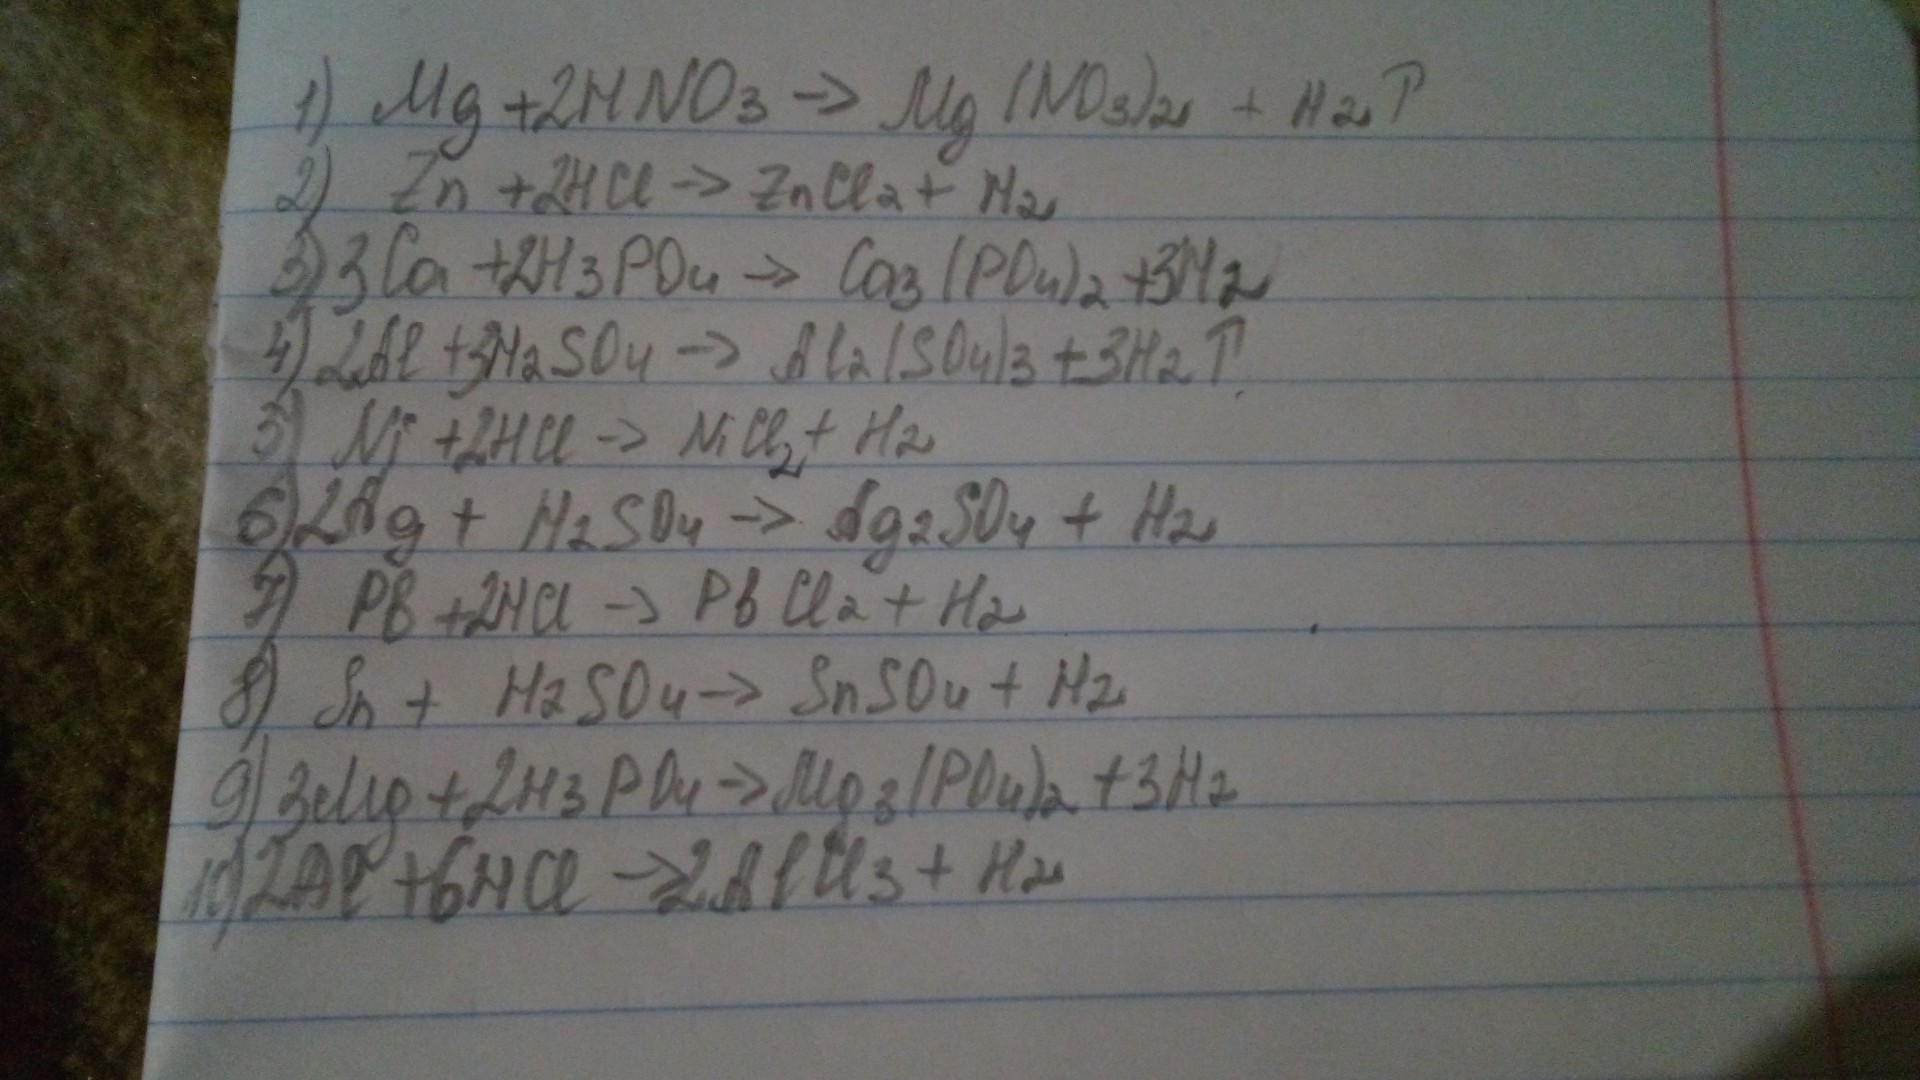 1) Mg +2HNO3 -> Mg (NO3)2 + H2↑
2) Zn +2HCl -> ZnCl2 + H2
3) 3Ca +2H3PO4 -> Ca3 (PO4)2 +3H2
4) 2Al +3H2SO4 -> Al2(SO4)3 +3H2↑
5) Ni +2HCl -> NiCl2 + H2
6) 2Ag + H2SO4 -> Ag2SO4 + H2
7) Pb +2HCl -> PbCl2 + H2
8) Sn + H2SO4 -> SnSO4 + H2
9) 3Mg +2H3PO4 -> Mg3(PO4)2 +3H2
10) 2Al +6HCl -> 2AlCl3 + H2